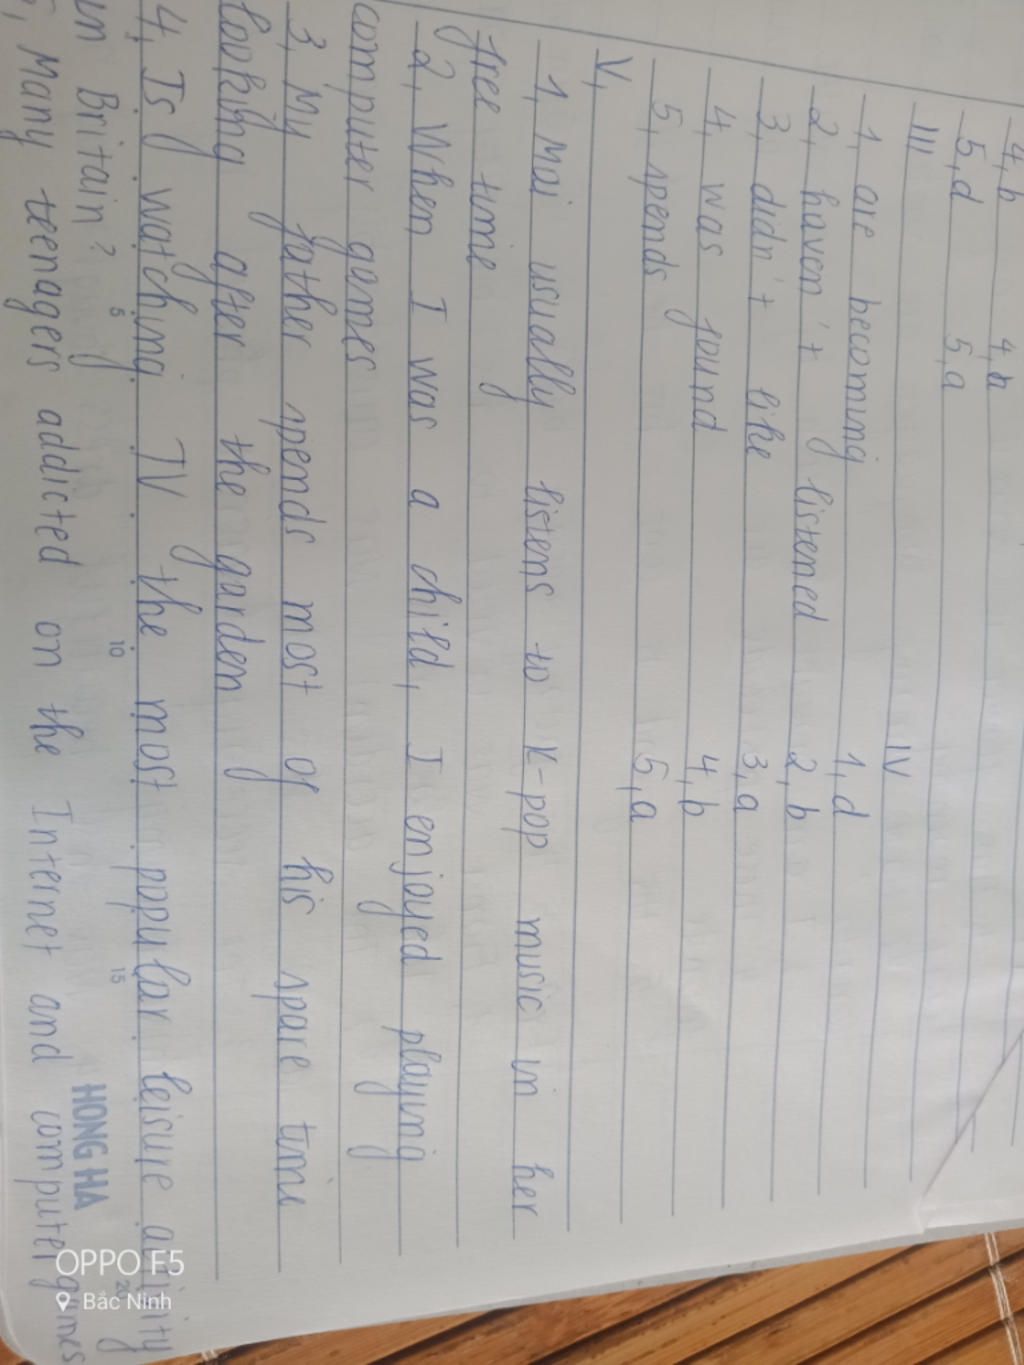 4, b 4, a
5, d 5, a
III IV
1, are becoming 1, d
2, haven't listened 2, b
3, didn't like 3, a
4, was found 4, b
5, spends 5, a
V,
1, Mai usually listens to K-pop music in her
free time
2, When I was a child, I enjoyed playing
computer games
3, My father spends most of his spare time
looking after the garden
4, Is watching TV the most popular leisure activity
in Britain?
5, Many teenagers addicted on the Internet and computer games
5 10 15 20
HONG HA
OPPO F5
Bắc Ninh